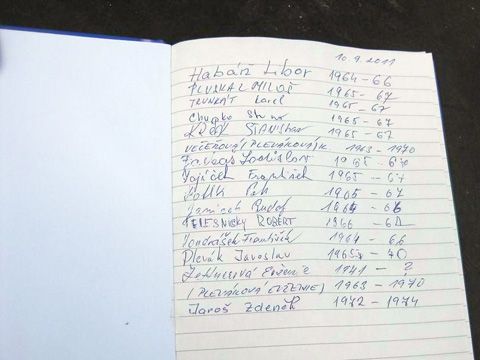 10.9.2011
Habáň Libor 1964-66
PLUSKAL MILOŠ 1965-67
TRUNKÁT Karel 1965-67
Chupko 1965-67
KRČEK STANISLAV 1965-67
VEČEŘOVÁ (PLEVÁKOVÁ) K 1963-1970
Ladislav 1965-67
Vojáček František 1965-67
Petr 1965-67
Janíček Rudolf 1964-66
TELESNICKÝ ROBERT 1966-68
Vondrášek František 1964-66
Plevák Jaroslav 1965-70
Evženie 1941-?
(PLEVÁKOVÁ EVŽENIE) 1963-1970
Jaroš Zdeněk 1972-1974